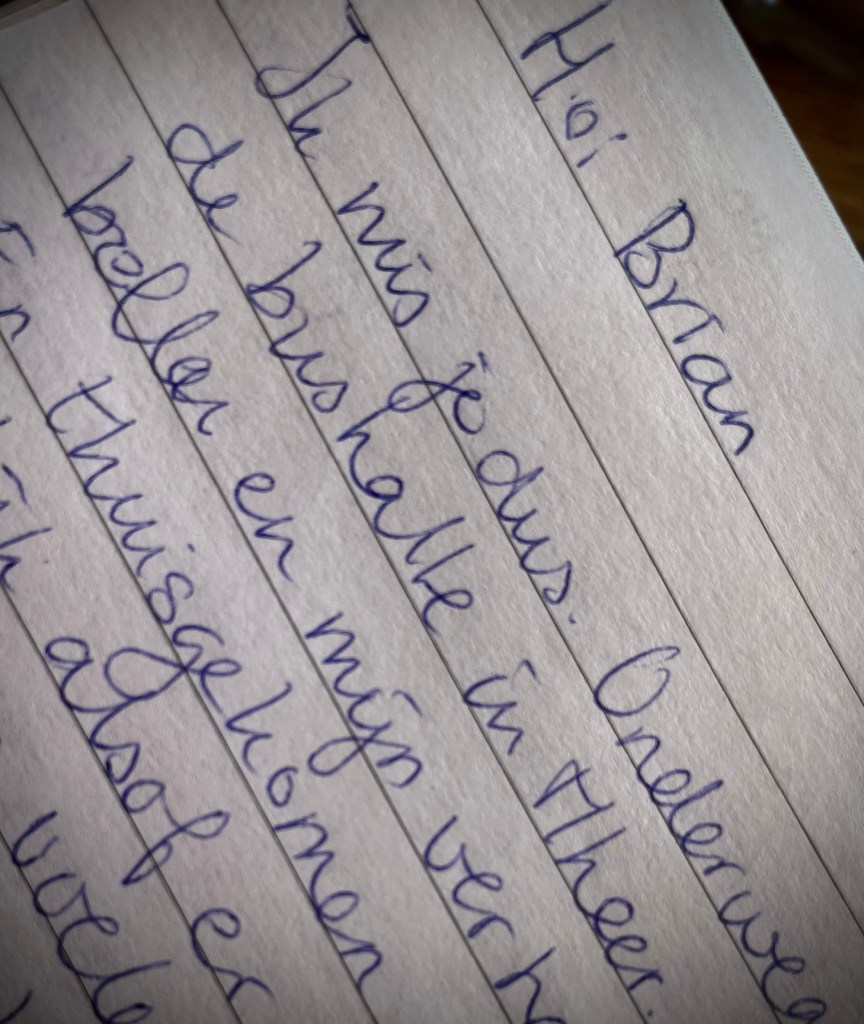 Hoi Brian
Ik mis je dus. Onderweg
de bushalte in Heer.
bellen en mijn verh
En thuisgekomen
ik alsof er
voel